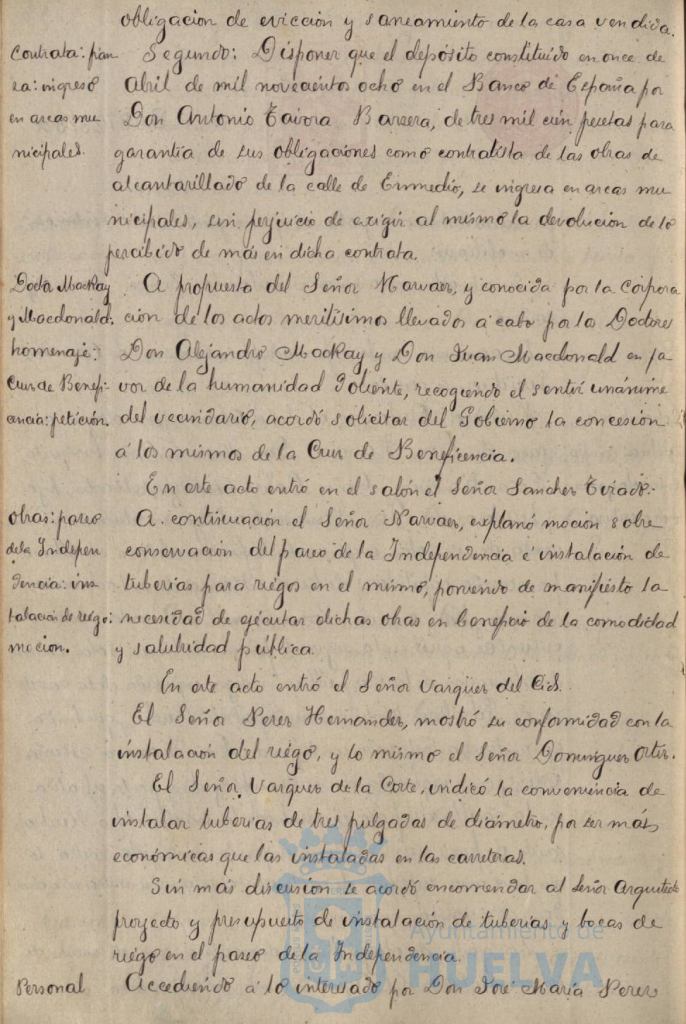 obligacion de evicción y saneamiento de la casa vendida.
Contrata: fian
za: ingreso
en arcas mu
nicipales.
Segundo: Disponer que el depósito constituido en once de
abril de mil novecientos ocho en el Banco de España por
Don Antonio Távora Barrera, de tres mil cien pesetas para
garantía de sus obligaciones como contratista de las obras de
alcantarillado de la calle de Enmedio, se ingresa en arcas mu
nicipales, sin perjuicio de exigir al mismo la devolución de lo
percibido de más en dicha contrata.
Doctor MacKay
y Macdonald:
homenaje:
Cruz de Benefi-
cencia: petición.
A propuesta del Señor Narvaez, y conocida por la Corpora
ción de los actos meritísimos llevados a cabo por los Doctores
Don Alejandro MacKay y Don Juan Macdonald en fa
vor de la humanidad doliente, recogiendo el sentir unánime
del vecindario, acordó solicitar del Gobierno la concesión
á los mismos de la Cruz de Beneficencia.
En este acto entró en el salón el Señor Sanchez Tirado.
Obras: paseo
de la Indepen
dencia: ins
talación de riego:
mocion.
A continuación el Señor Narvaez, explanó moción sobre
conservación del paseo de la Independencia é instalación de
tuberías para riegos en el mismo, poniendo de manifiesto la
necesidad de ejecutar dichas obras en beneficio de la comodidad
y salubridad pública.
En este acto entró el Señor Vazquez del Cid.
El Señor Perez Hernandez, mostró su conformidad con la
instalación del riego, y lo mismo el Señor Dominguez Ortiz.
El Señor Vazquez de la Corte, indicó la conveniencia de
instalar tuberías de tres pulgadas de diámetro, por ser más
económicas que las instaladas en las carreteras.
Sin más discusión se acordó encomendar al Señor Arquitecto
proyecto y presupuesto de instalación de tuberías y bocas de
riego en el paseo de la Independencia.
Ayuntamiento de
HUELVA
Personal
Accediendo á lo interesado por Don José María Perez